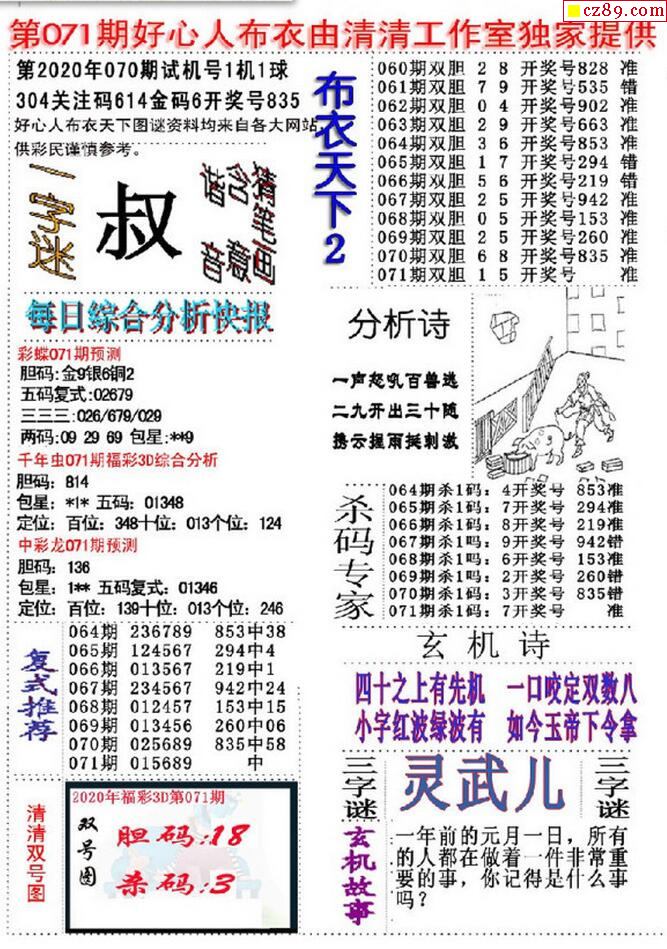 cz89.com
第071期好心人布衣由清清工作室独家提供
第2020年070期试机号1机1球
304关注码614金码6开奖号835
好心人布衣天下图谜资料均来自各大网站,
供彩民谨慎参考。
一字迷
叔
谐音
含意
猜笔画
每日综合分析快报
彩蝶071期预测
胆码:金9银6铜2
五码复式:02679
三三三:026/679/029
两码:09 29 69 包星:**9
千年虫071期福彩3D综合分析
胆码: 814
包星: *1* 五码: 01348
定位: 百位: 348十位: 013个位: 124
中彩龙071期预测
胆码: 136
包星: 1** 五码复式: 01346
定位: 百位: 139十位: 013个位: 246
复式推荐
064期 236789 853中38
065期 124567 294中4
066期 013567 219中1
067期 234567 942中24
068期 012457 153中15
069期 013456 260中06
070期 025689 835中58
071期 015689 中
清清双号图
2020年福彩3D第071期
双号图
胆码:18
杀码:3
布衣天下2
060期双胆 2 8 开奖号828 准
061期双胆 7 9 开奖号535 错
062期双胆 0 4 开奖号902 准
063期双胆 2 9 开奖号663 准
064期双胆 3 6 开奖号853 准
065期双胆 1 7 开奖号294 错
066期双胆 5 6 开奖号219 错
067期双胆 2 5 开奖号942 准
068期双胆 0 5 开奖号153 准
069期双胆 2 5 开奖号260 准
070期双胆 6 8 开奖号835 准
071期双胆 1 5 开奖号 准
分析诗
一声怒吼百兽逃
二九开出三十随
携云握雨挺刺激
杀码专家
064期杀1码: 4开奖号 853准
065期杀1码: 7开奖号 294准
066期杀1码: 8开奖号 219准
067期杀1码: 9开奖号 942错
068期杀1码: 6开奖号 153准
069期杀1码: 2开奖号 260错
070期杀1码: 3开奖号 835错
071期杀1码: 7开奖号 准
玄机诗
四十之上有先机 一口咬定双数八
小字红波绿波有 如今玉帝下令拿
三字谜
灵武儿
三字谜
玄机故事
一年前的元月一日，所有
的人都在做着一件非常重
要的事，你记得是什么事
吗？